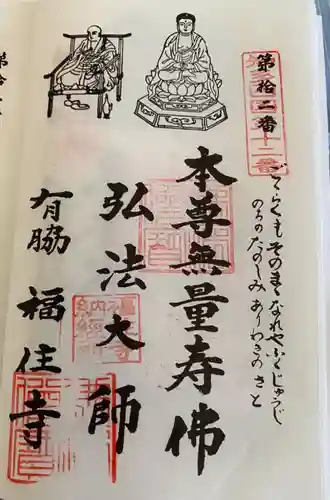 第拾二番
ごくらくもそのまゝなれやふくじゅうじ
のちのたのしみありわきのさと
本尊無量寿佛
弘法大師
有脇
福住寺